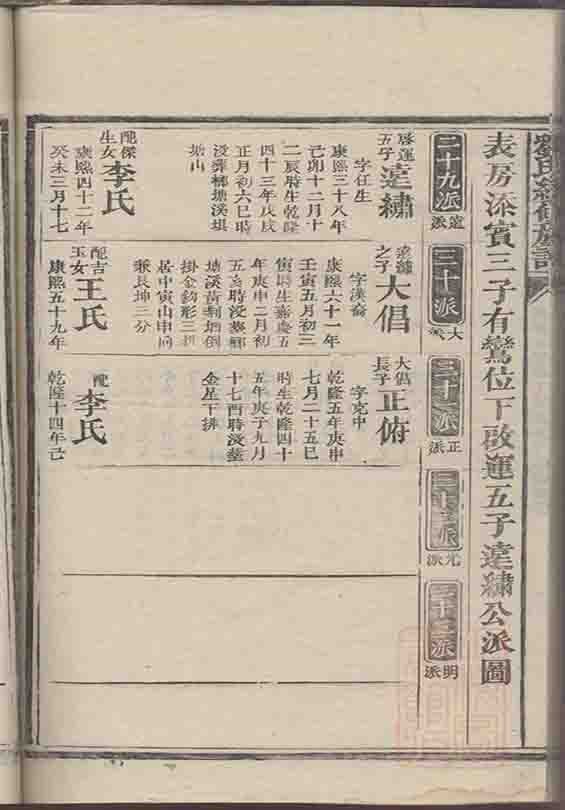 劉氏續修族譜
表房添賓三子有鸞位下啟運五子逵繡公派圖
二十九派 逵派
三十派 大派
三十一派 正派
三十二派 光派
三十三派 明派
啟運五子 逵繡
字任生
康熙三十八年
己卯十二月十
二辰時生乾隆
四十三年戊戌
正月初六巳時
沒葬
塘山
配傑生女 李氏
康熙四十二年
癸未三月十七
逵繡之子 大倡
字漢裔
康熙六十一年
壬寅五月初三
寅時生嘉慶五
年庚申二月初
五亥時沒葬鄉
塘溪黃荊塘倒
掛金鈎形三排
居中寅山申向
兼艮坤三分
配吉玉女 王氏
康熙五十九年
大倡長子 正俯
字克中
乾隆五年庚申
七月二十五巳
時生乾隆四十
五年庚子九月
十七酉時沒葬
金星下排
配 李氏
乾隆十四年己